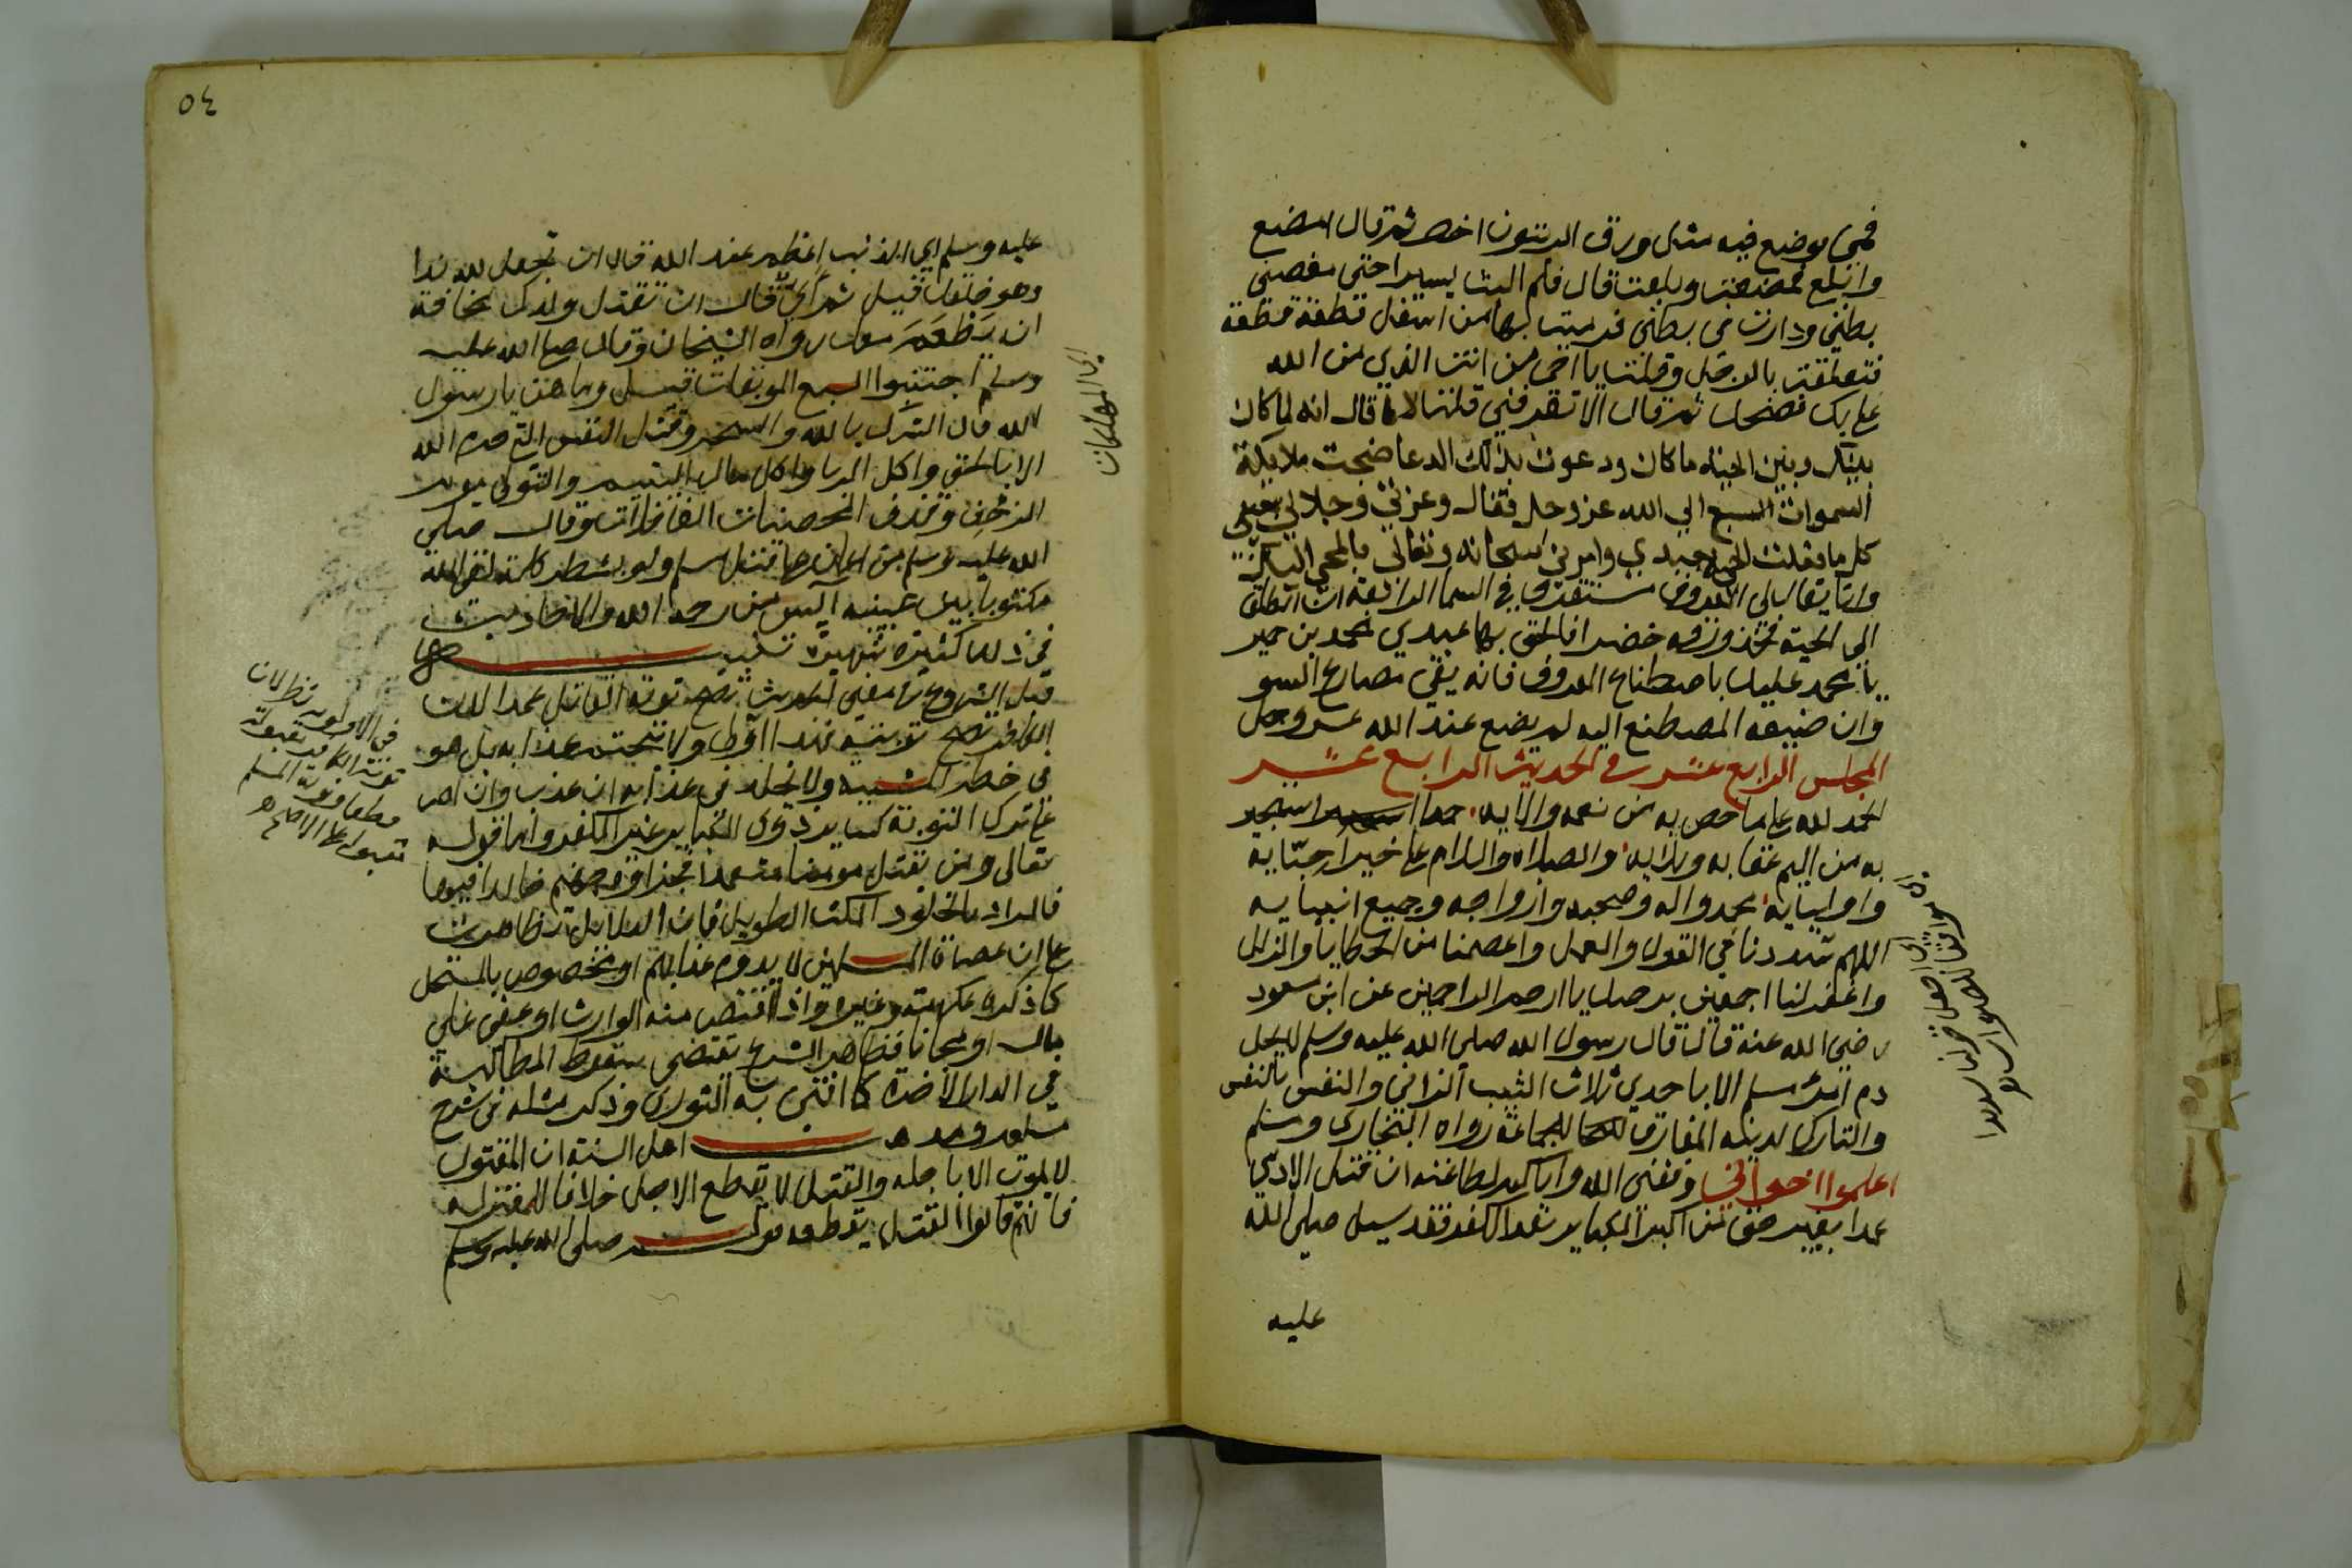 فمي فوضع فيه مثل ورق الزيتون اخضر ثم قال امضغ
وابلع فمضغت وبلعت قال فلم البث يسيرا حتى مغصني
بطني ودارت في بطني فرميت بها من اسفل قطعة قطعة
فتعلقت بالرجل وقلت يا اخي من انت الذي من الله
علي بك فضحك ثم قال الا تعرفني قلت لا قال انه لما كان
بينك وبين الحية ما كان ودعوت بذلك الدعا ضجت ملايكة
السموات السبع الي الله عز وجل فقال وعزتي وجلالي بعيني
كل ما فعلت الحية بعبدي وامرني سبحانه وتعالى بالمجي اليك
وانا يقال لي المعروف مستقري في السما الرابعة ان انطلق
الي الجنة فخذ ورقة خضرا فالحق بها عبدي محمد بن حمير
يا محمد عليك باصطناع المعروف فانه يقي مصارع السو
وان ضيعه المصطنع اليه لم يضع عند الله عز وجل
المجلس الرابع عشر في الحديث الرابع عشر
الحمد لله علي ما خص به من نعمه والايه حمدا استجير
به من اليم عقابه وبلايه والصلاة والسلام علي خير احبابه
واوليايه محمد واله وصحبه وازواجه وجميع انبيايه
اللهم سددنا في القول والعمل واعصمنا من الخطايا والزلل
واغفر لنا اجمعين برحمتك يا ارحم الراحمين عن ابن مسعود
رضي الله عنه قال قال رسول الله صلى الله عليه وسلم لا يحل
دم امرئ مسلم الا باحدي ثلاث الثيب الزاني والنفس بالنفس
والتارك لدينه المفارق للجماعة رواه البخاري ومسلم
اعلموا اخواني وفقني الله واياكم لطاعته ان قتل الادمي
عمدا بغير حق من اكبر الكباير بعد الكفر فقد سيل صلى الله
عليه
٥٤
عليه وسلم اي الذنب اعظم عند الله قال ان تجعل لله ندا
وهو خلقك قيل ثم اي قال ان تقتل ولدك مخافة
ان يطعم معك رواه الشيخان وقال صلى الله عليه
وسلم اجتنبوا السبع الموبقات قيل وما هن يا رسول
الله قال الشرك بالله والسحر وقتل النفس التي حرم الله
الا بالحق واكل الربا واكل مال اليتيم والتولي يوم
الزحف وقذف المحصنات الغافلات وقال صلى
الله عليه وسلم من اعان علي قتل مسلم ولو بشطر كلمة لقي الله
مكتوبا بين عينيه آيس من رحمة الله والاحاديث
في ذلك كثيرة شهيرة تنبيه
قبل الشروع في معني الحديث تصح توبة القاتل عمدا لان
الكافر تصح توبته فهذا اولى ولا يتحتم عذابه بل هو
في خطر المشيه ولا يخلد في عذابه ان عذب وان اصر
علي ترك التوبة كساير ذوي الكباير غير الكفر واما قوله
تعالى ومن يقتل مومنا متعمدا فجزاوه جهنم خالدا فيها
فالمراد بالخلود المكث الطويل فان الدلايل تظاهرت
علي ان عصاة المسلمين لا يدوم عذابهم او مخصوص بالمستحل
كما ذكره عكرمة وغيره واذا اقتص منه الوارث او عفى علي
مال او مجانا فظاهر الشرع يقتضي سقوط المطالبة
في الدار الاخرة كما افتى به النووي وذكر مثله في شرح
مسلم ومذهب اهل السنة ان المقتول
لا يموت الا باجله والقتل لا يقطع الاجل خلافا للمعتزله
فانهم قالوا القتل يقطعه قوله صلى الله عليه وسلم
اي المهلكات
في الاولوية نظر لان
توبة الكافر مقبولة
قطعا وتوبة المسلم
تقبل علي الاصح